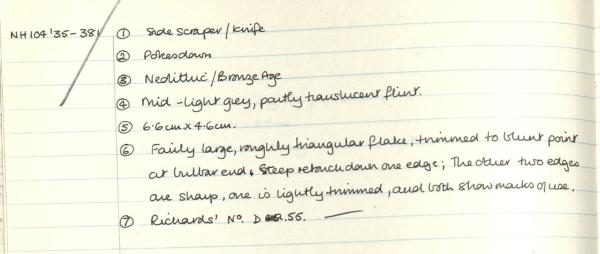 NH104'35-38 ① Side scraper/knife
② Pokesdown
③ Neolithic/Bronze Age
④ Mid-light grey, partly translucent flint.
⑤ 6.6cm x 4.6cm.
⑥ Fairly large, roughly triangular flake, trimmed to blunt point
at bulbar end. Steep retouch down one edge; The other two edges
are sharp, one is lightly trimmed, and both show marks of use.
⑦ Richards' No. D .55.